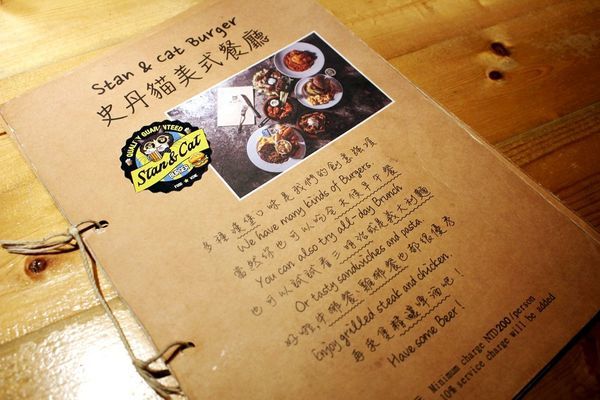 Stan & Cat Burger
史丹貓美式餐廳
QUALITY GUARANTEED
Stan & Cat
BURGER
多種漢堡口味是我們的創意強項
We have many kinds of Burgers.
當然你也可以吃全天侯早午餐
You can also try all-day Brunch
也可以試試看三明治或是義大利麵
Or tasty sandwiches and pasta.
好啦,牛排餐雞排餐也都很優秀
Enjoy grilled steak and chicken.
再來整精釀啤酒吧！
Have some Beer!
Minimum charge NTD200/person
10% service charge will be added